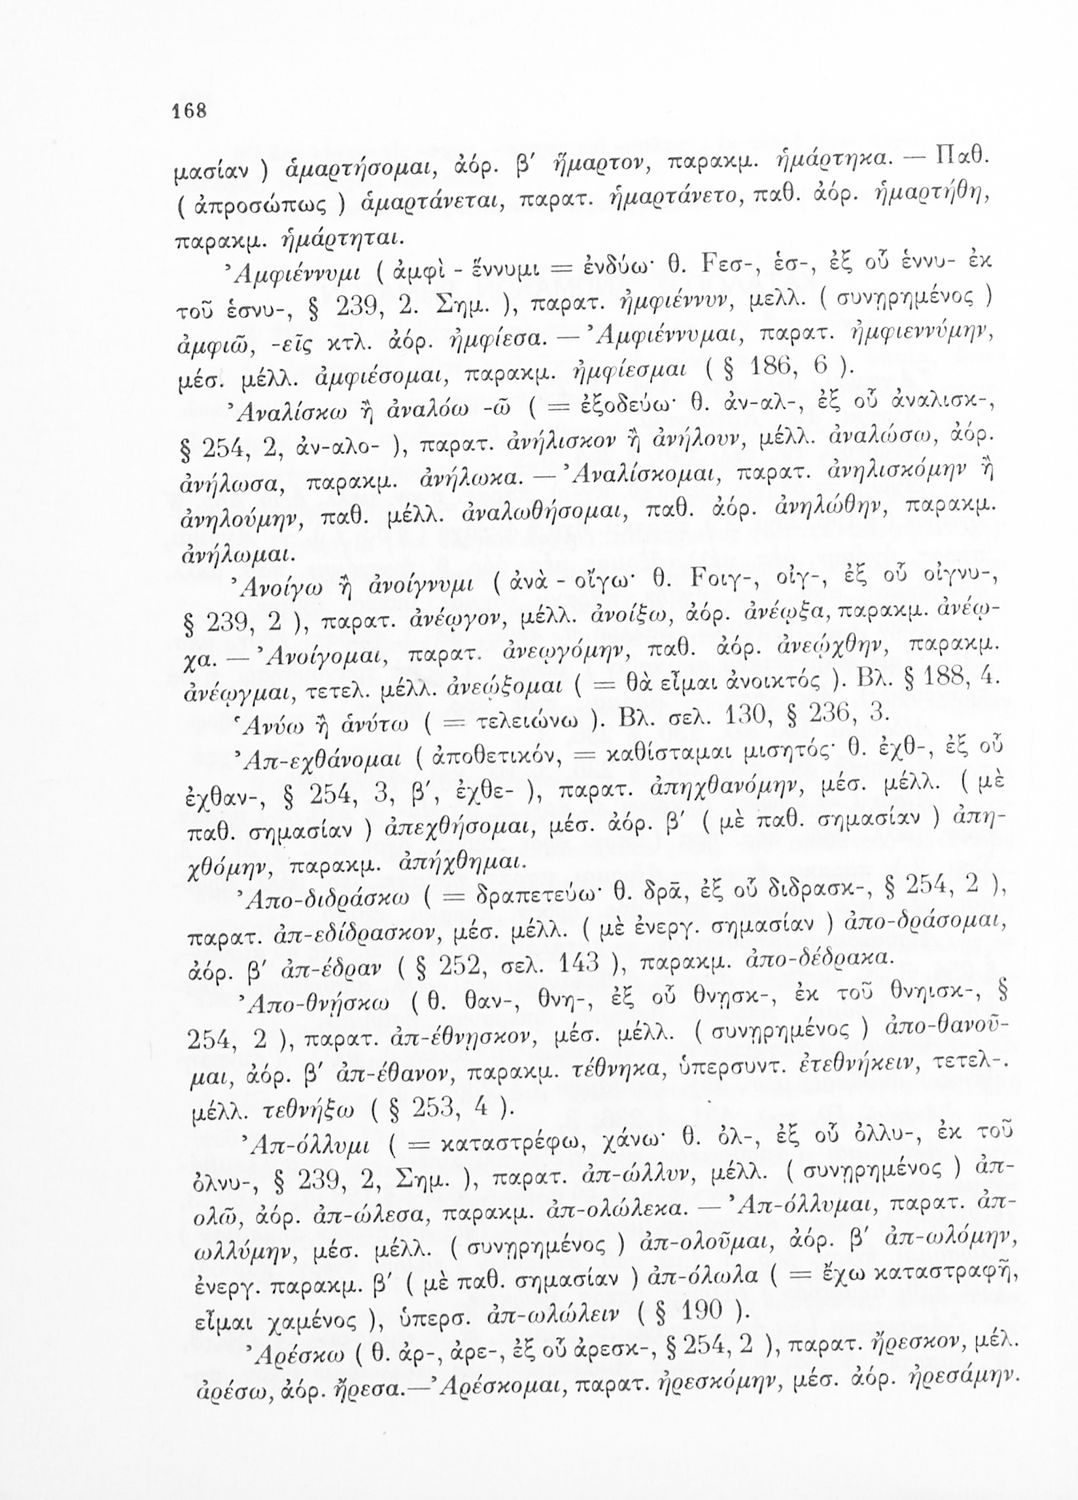 168
μασίαν ) ἁμαρτήσομαι, ἀόρ. β' ἥμαρτον, παρακμ. ἡμάρτηκα. — Παθ.
( ἀπροσώπως ) ἁμαρτάνεται, παρατ. ἡμαρτάνετο, παθ. ἀόρ. ἡμαρτήθη,
παρακμ. ἡμάρτηται.
Ἀμφιέννυμι ( ἀμφὶ - ἕννυμι = ἐνδύω· θ. Fεσ-, ἑσ-, ἐξ οὗ ἑννυ- ἐκ
τοῦ ἑσνυ-, § 239, 2. Σημ. ), παρατ. ἠμφιέννυν, μελλ. ( συνῃρημένος )
ἀμφιῶ, -εῖς κτλ. ἀόρ. ἠμφίεσα. — Ἀμφιέννυμαι, παρατ. ἠμφιεννύμην,
μέσ. μέλλ. ἀμφιέσομαι, παρακμ. ἠμφίεσμαι ( § 186, 6 ).
Ἀναλίσκω ἢ ἀναλόω -ῶ ( = ἐξοδεύω· θ. ἀν-αλ-, ἐξ οὗ ἀναλισκ-,
§ 254, 2, ἀν-αλο- ), παρατ. ἀνήλισκον ἢ ἀνήλουν, μέλλ. ἀναλώσω, ἀόρ.
ἀνήλωσα, παρακμ. ἀνήλωκα. — Ἀναλίσκομαι, παρατ. ἀνηλισκόμην ἢ
ἀνηλούμην, παθ. μέλλ. ἀναλωθήσομαι, παθ. ἀόρ. ἀνηλώθην, παρακμ.
ἀνήλωμαι.
Ἀνοίγω ἢ ἀνοίγνυμι ( ἀνὰ - οἴγω· θ. Fοιγ-, οἰγ-, ἐξ οὗ οἰγνυ-,
§ 239, 2 ), παρατ. ἀνέῳγον, μέλλ. ἀνοίξω, ἀόρ. ἀνέῳξα, παρακμ. ἀνέῳ-
χα. — Ἀνοίγομαι, παρατ. ἀνεῳγόμην, παθ. ἀόρ. ἀνεῴχθην, παρακμ.
ἀνέῳγμαι, τετελ. μέλλ. ἀνεῴξομαι ( = θὰ εἶμαι ἀνοικτός ). Βλ. § 188, 4.
Ἁνύω ἢ ἁνύτω ( = τελειώνω ). Βλ. σελ. 130, § 236, 3.
Ἀπ-εχθάνομαι ( ἀποθετικόν, = καθίσταμαι μισητός· θ. ἐχθ-, ἐξ οὗ
ἐχθαν-, § 254, 3, β', ἐχθε- ), παρατ. ἀπηχθανόμην, μέσ. μέλλ. ( μὲ
παθ. σημασίαν ) ἀπεχθήσομαι, μέσ. ἀόρ. β' ( μὲ παθ. σημασίαν ) ἀπη-
χθόμην, παρακμ. ἀπήχθημαι.
Ἀπο-διδράσκω ( = δραπετεύω· θ. δρᾱ, ἐξ οὗ διδρασκ-, § 254, 2 ),
παρατ. ἀπ-εδίδρασκον, μέσ. μέλλ. ( μὲ ἐνεργ. σημασίαν ) ἀπο-δράσομαι,
ἀόρ. β' ἀπ-έδραν ( § 252, σελ. 143 ), παρακμ. ἀπο-δέδρακα.
Ἀπο-θνῄσκω ( θ. θαν-, θνη-, ἐξ οὗ θνῃσκ-, ἐκ τοῦ θνηισκ-, §
254, 2 ), παρατ. ἀπ-έθνῃσκον, μέσ. μέλλ. ( συνῃρημένος ) ἀπο-θανοῦ-
μαι, ἀόρ. β' ἀπ-έθανον, παρακμ. τέθνηκα, ὑπερσυντ. ἐτεθνήκειν, τετελ-.
μέλλ. τεθνήξω ( § 253, 4 ).
Ἀπ-όλλυμι ( = καταστρέφω, χάνω· θ. ὀλ-, ἐξ οὗ ὀλλυ-, ἐκ τοῦ
ὀλνυ-, § 239, 2, Σημ. ), παρατ. ἀπ-ώλλυν, μέλλ. ( συνῃρημένος ) ἀπ-
ολῶ, ἀόρ. ἀπ-ώλεσα, παρακμ. ἀπ-ολώλεκα. — Ἀπ-όλλυμαι, παρατ. ἀπ-
ωλλύμην, μέσ. μέλλ. ( συνῃρημένος ) ἀπ-ολοῦμαι, ἀόρ. β' ἀπ-ωλόμην,
ἐνεργ. παρακμ. β' ( μὲ παθ. σημασίαν ) ἀπ-όλωλα ( = ἔχω καταστραφῆ,
εἶμαι χαμένος ), ὑπερσ. ἀπ-ωλώλειν ( § 190 ).
Ἀρέσκω ( θ. ἀρ-, ἀρε-, ἐξ οὗ ἀρεσκ-, § 254, 2 ), παρατ. ἤρεσκον, μέλ.
ἀρέσω, ἀόρ. ἤρεσα.—Ἀρέσκομαι, παρατ. ἠρεσκόμην, μέσ. ἀόρ. ἠρεσάμην.